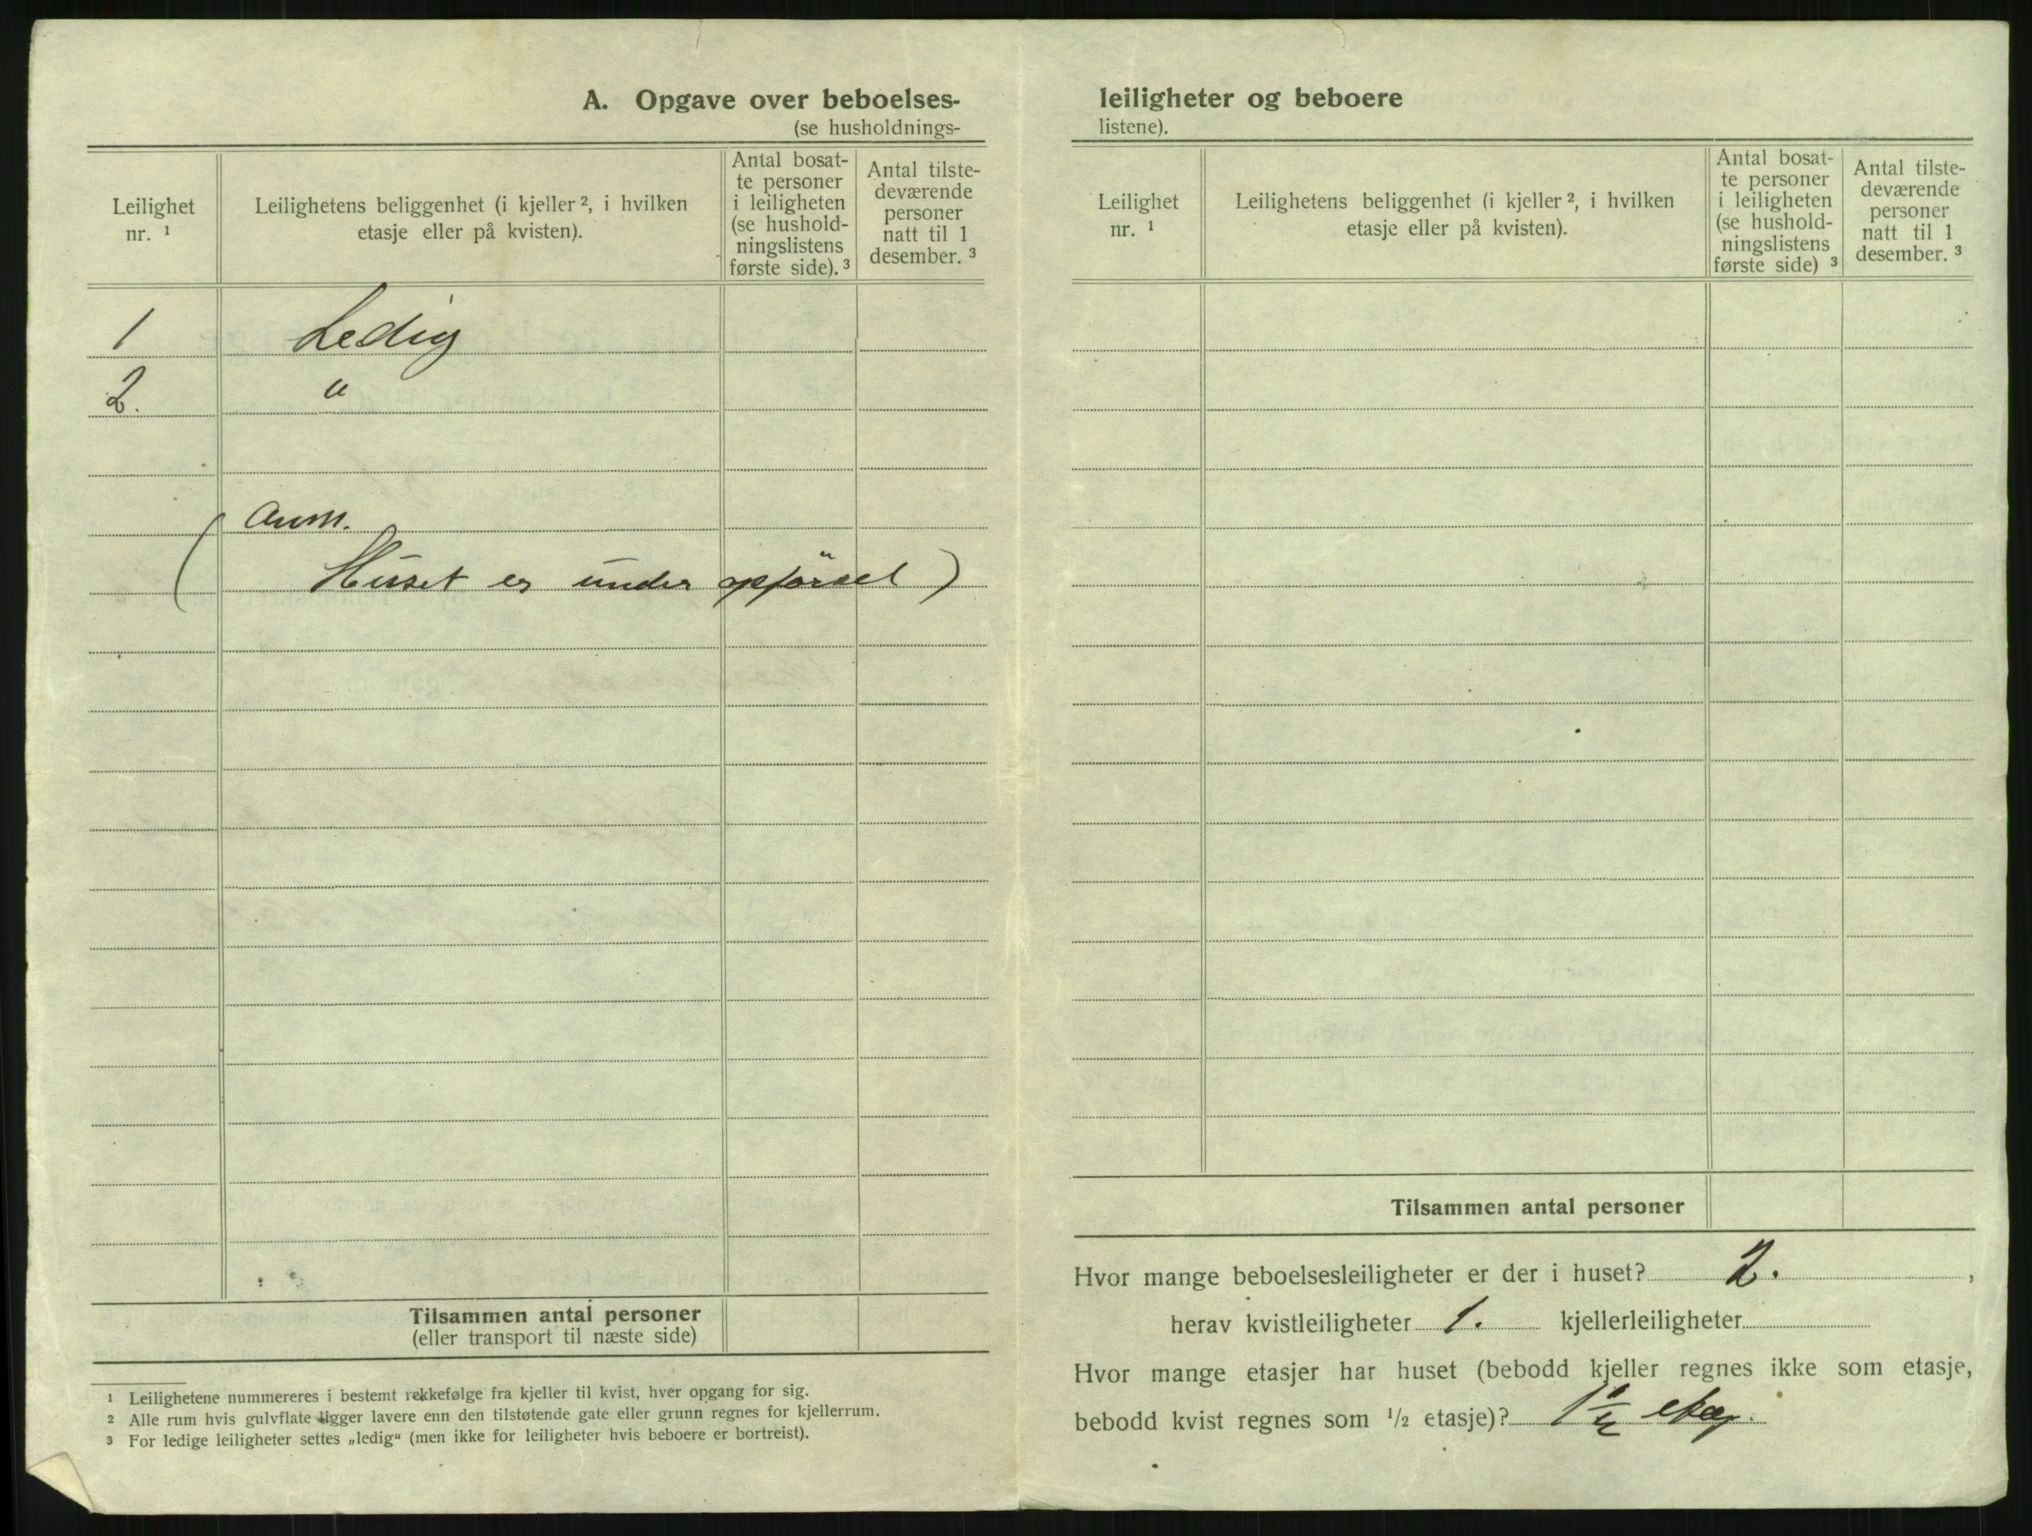 A. Opgave over beboelses-
(se husholdnings-
Leilighet
nr. ¹
Leilighetens beliggenhet (i kjeller ², i hvilken
etasje eller på kvisten).
Antal bosat-
te personer
i leiligheten
(se hushold-
ningslistens
første side). ³
Antal tilste-
deværende
personer
natt til 1
desember. ³
1 Ledig
2. "
(Anm.
Huset er under opförsel)
Tilsammen antal personer
(eller transport til næste side)
¹ Leilighetene nummereres i bestemt rekkefølge fra kjeller til kvist, hver opgang for sig.
² Alle rum hvis gulvflate ligger lavere enn den tilstøtende gate eller grunn regnes for kjellerrum.
³ For ledige leiligheter settes „ledig“ (men ikke for leiligheter hvis beboere er bortreist).
leiligheter og beboere
listene).
Leilighet
nr. ¹
Leilighetens beliggenhet (i kjeller ², i hvilken
etasje eller på kvisten).
Antal bosat-
te personer
i leiligheten
(se hushold-
ningslistens
første side) ³
Antal tilste-
deværende
personer
natt til 1
desember. ³
Tilsammen antal personer
Hvor mange beboelsesleiligheter er der i huset? 2. ,
herav kvistleiligheter 1. kjellerleiligheter
Hvor mange etasjer har huset (bebodd kjeller regnes ikke som etasje,
bebodd kvist regnes som ½ etasje)? 1½